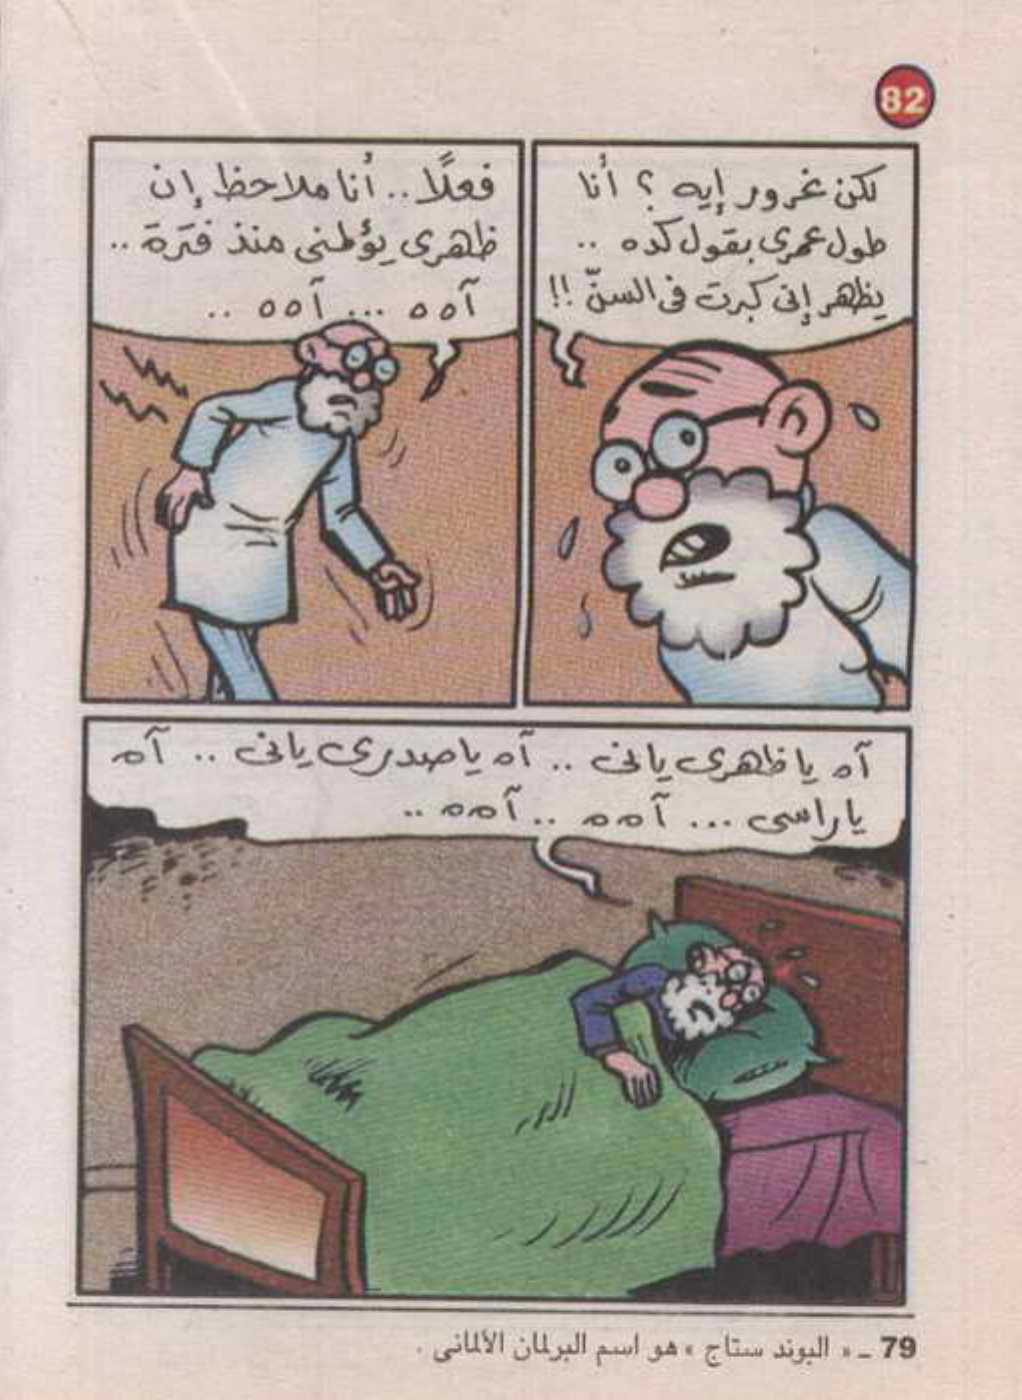 82
لكن غرور إيه ؟ أنا
طول عمرى بقول كده ..
يظهر إنى كبرت فى السنّ !!
فعلًا .. أنا ملاحظ إن
ظهرى يؤلمنى منذ فترة ..
آه ه ... آه ه ..
آه يا ظهرى يانى .. آه يا صدرى يانى .. آه
يا راسى ... آه ه .. آه ه ..
79 ـ « البوند ستاج » هو اسم البرلمان الألمانى .